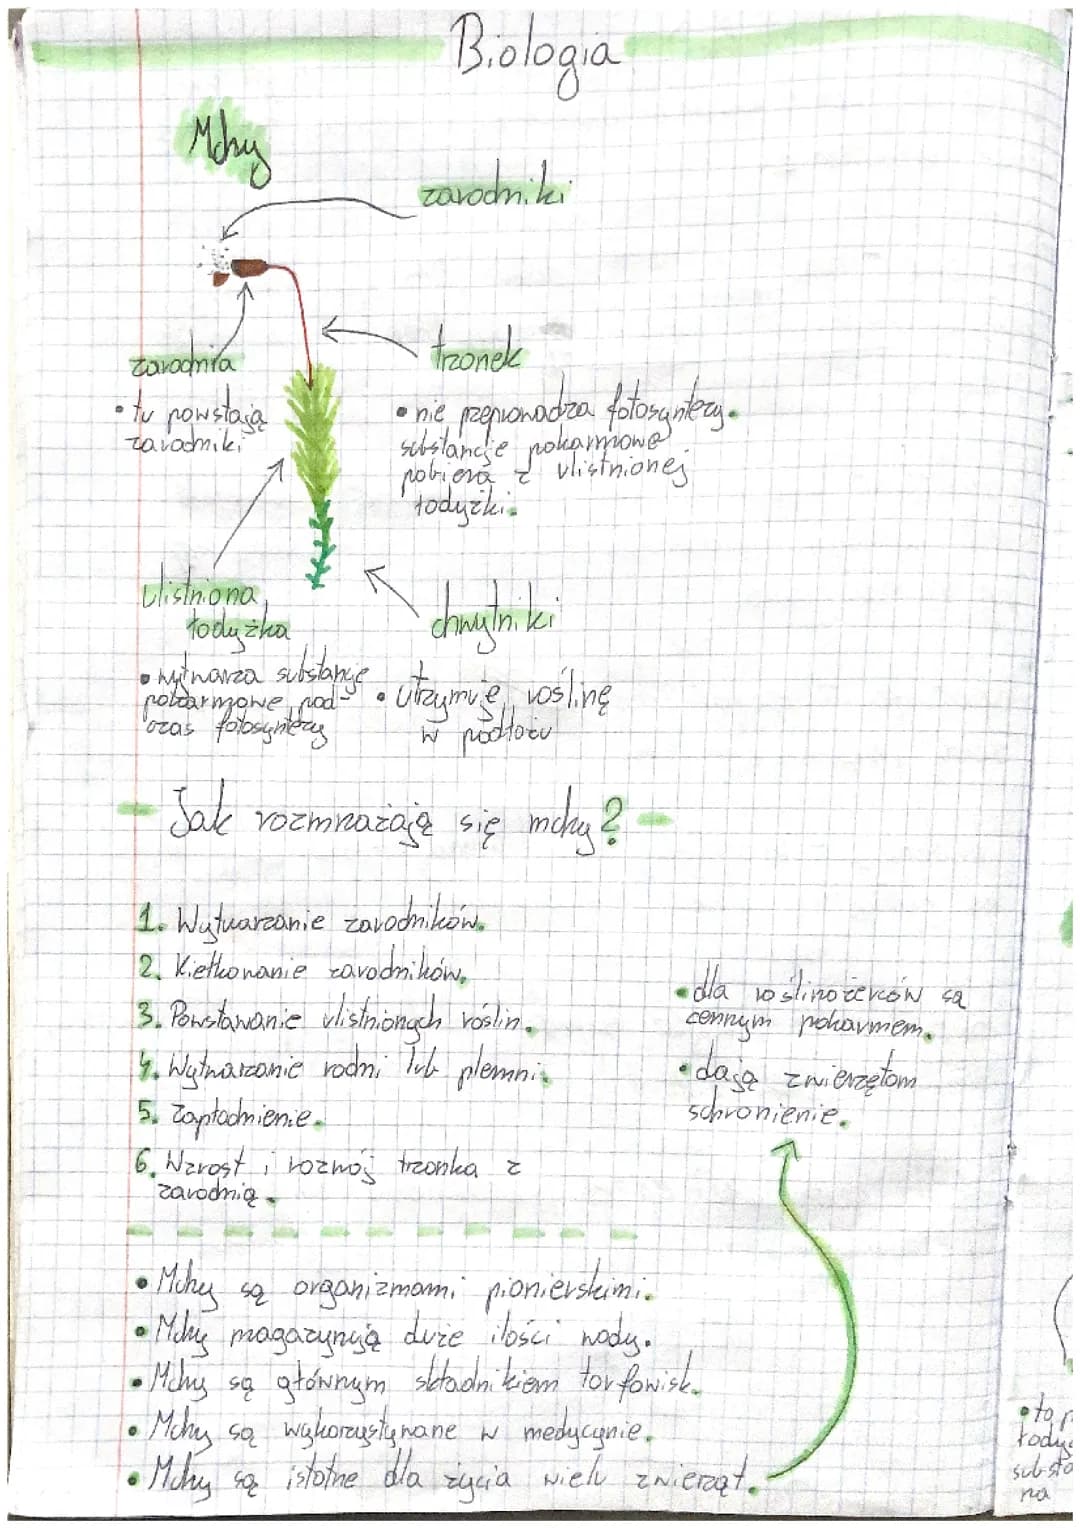 Biologia
Mchy
zarodniki
zarodnia
• tu powstają
zarodniki
trzonek
• nie przeprowadza fotosyntezy.
substancje pokarmowe
pobiera z ulistnionej
łodyżki.
ulistniona
łodyżka
• wytwarza substancje
pokarmowe pod-
czas fotosyntezy
chwytniki
• utrzymuje roślinę
w podłożu
- Jak rozmnażają się mchy? -
1. Wytwarzanie zarodników.
2. Kiełkowanie zarodników.
3. Powstawanie ulistnionych roślin.
4. Wytwarzanie rodni lub plemni.
5. Zapłodnienie.
6. Wzrost i rozwój trzonka z
zarodnią.
• dla roślinożerców są
cennym pokarmem.
• dają zwierzętom
schronienie.
• Mchy są organizmami pionierskimi.
• Mchy magazynują duże ilości wody.
• Mchy są głównym składnikiem torfowisk.
• Mchy są wykorzystywane w medycynie.
• Mchy są istotne dla życia wielu zwierząt.
• to
substa
na